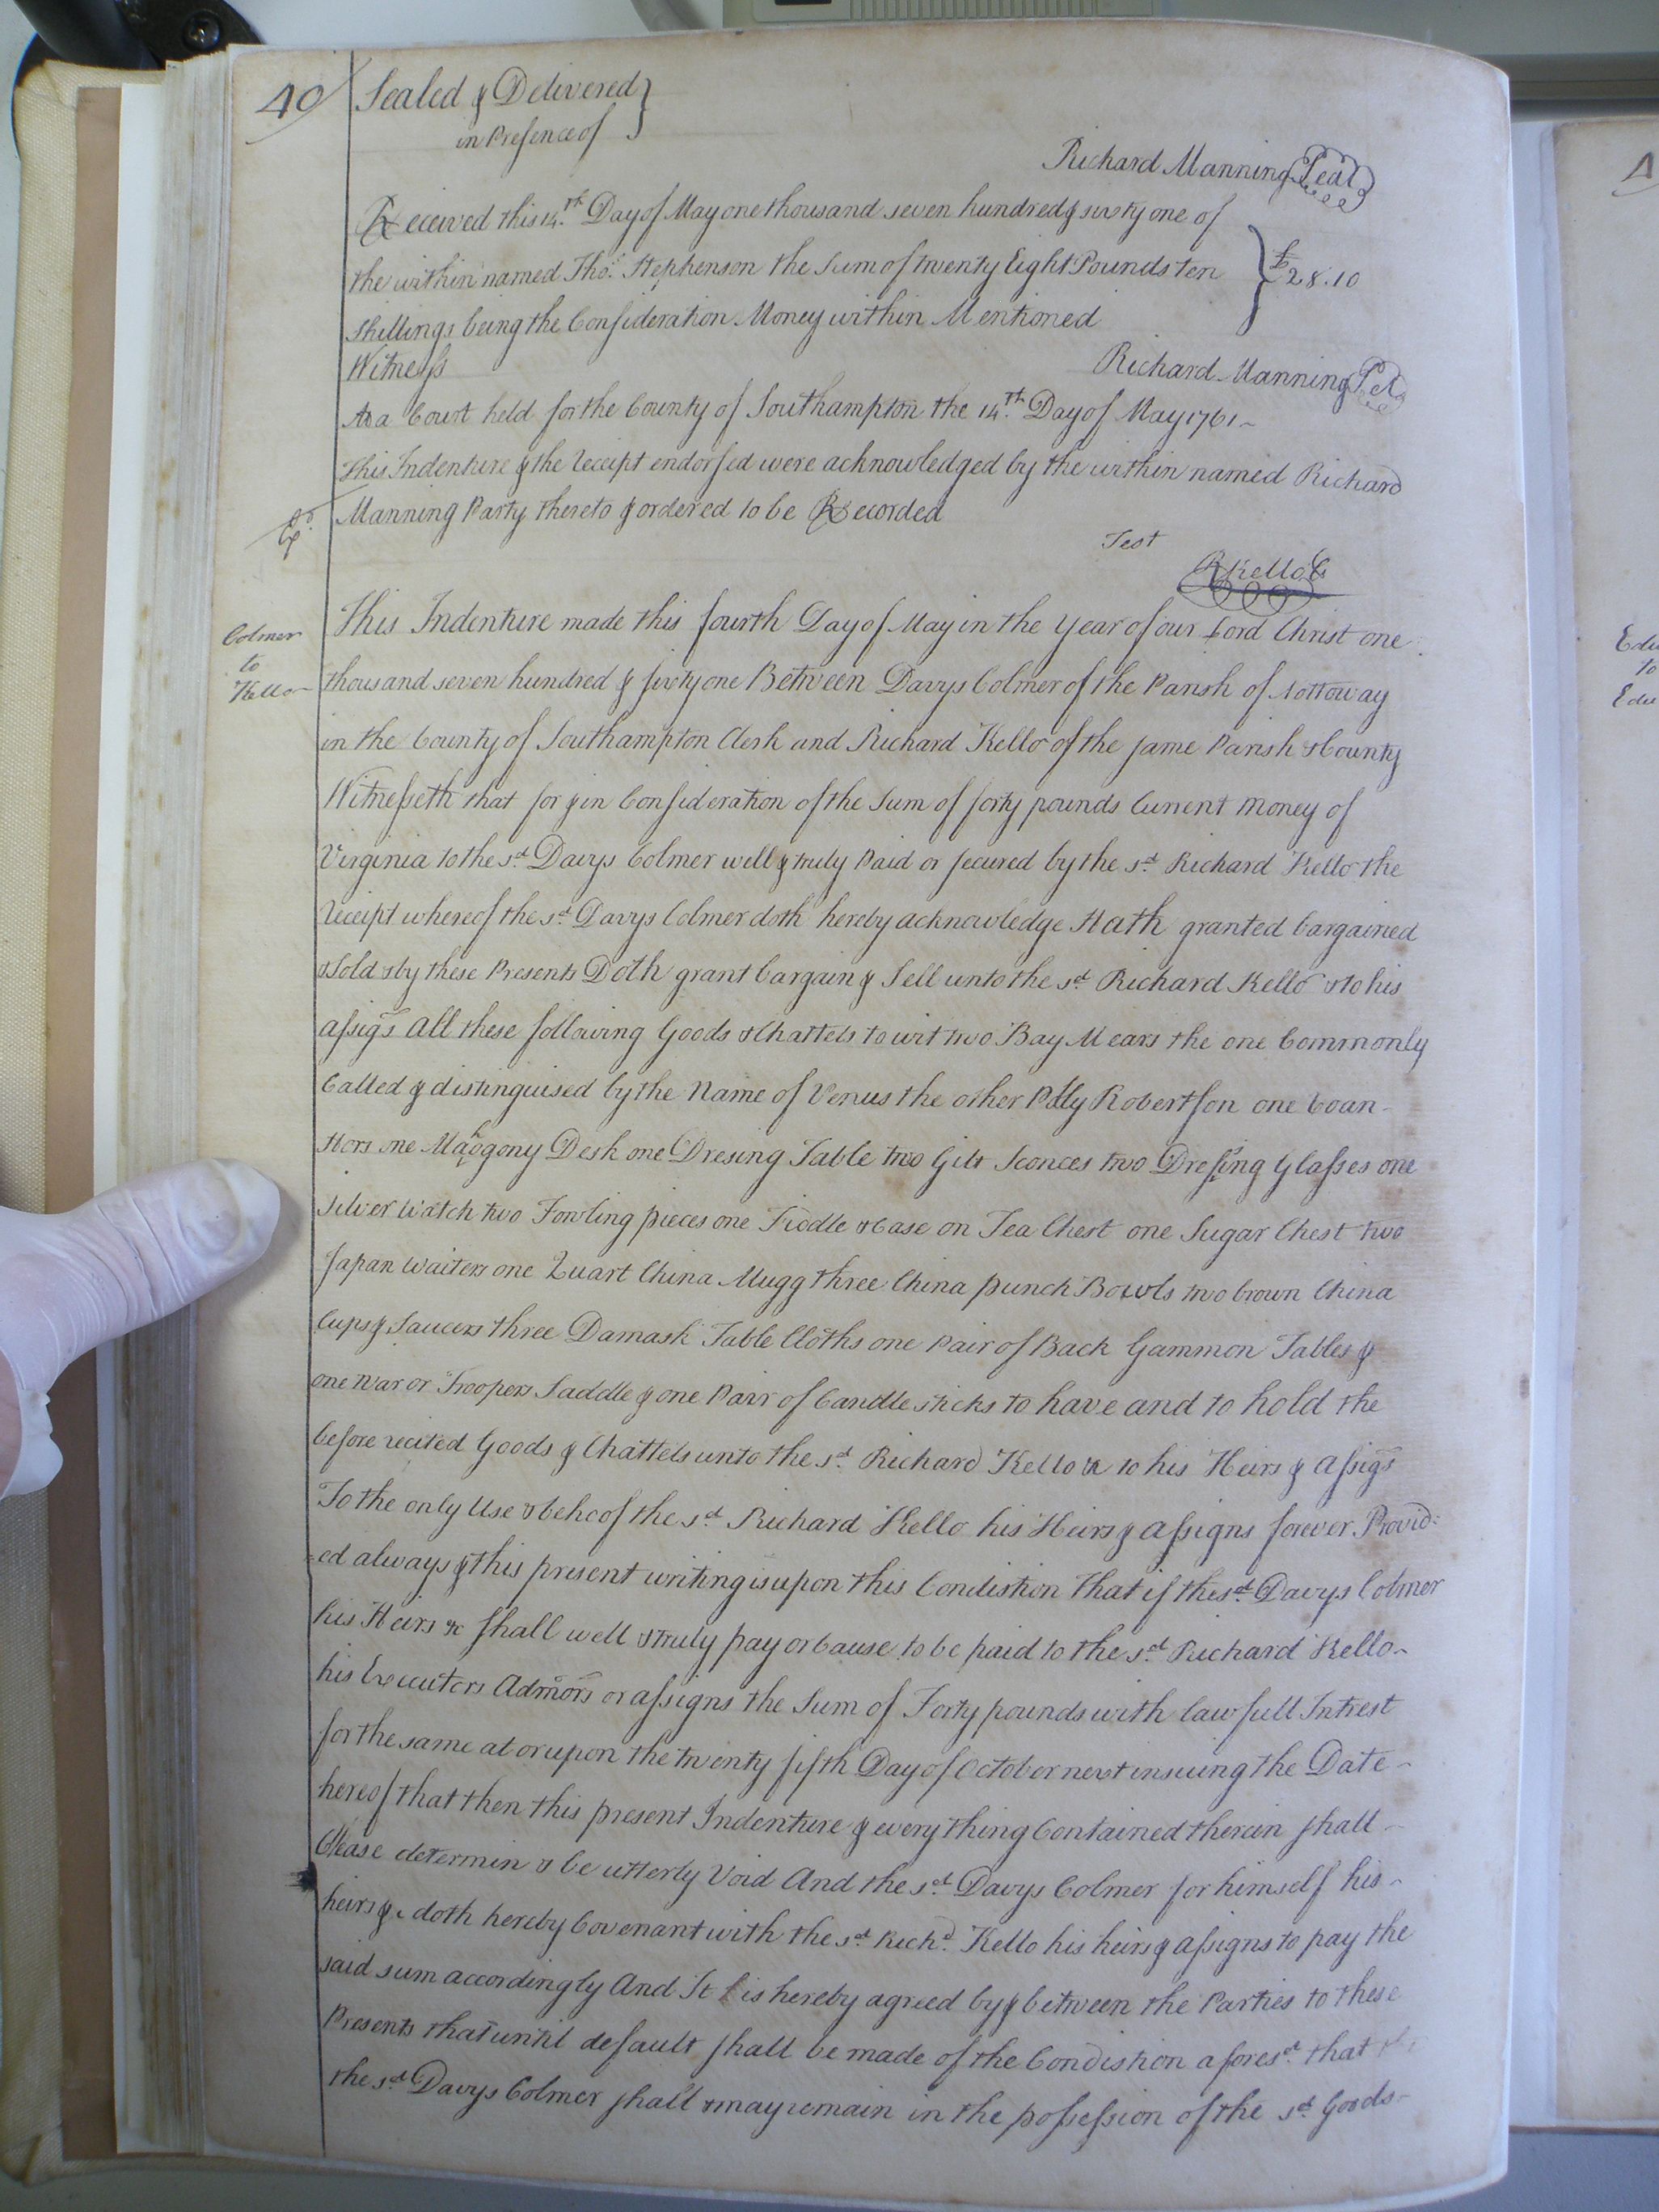 40
Sealed & Delivered }
in Presence of
Richard Manning Seal
Received this 14.th Day of May one thousand seven hundred & sixty one of
the within named Tho.s Stephenson the Sum of twenty Eight Pounds ten } £28.10
Shillings being the Consideration Money within Mentioned
Witness
Richard Manning
At a Court held for the County of Southampton the 14.th Day of May 1761
This Indenture & the Receipt endorsed were acknowledged by the within named Richard
Manning Party thereto & ordered to be Recorded
Test
R Kello C
Colmer
to
Kello
This Indenture made this fourth Day of May in the Year of our Lord Christ one
thousand seven hundred & sixty one Between Davys Colmer of the Parish of Nottoway
in the County of Southampton Clerk and Richard Kello of the same Parish & County
Witnesseth that for & in Consideration of the Sum of forty pounds Current money of
Virginia to the sd. Davys Colmer well & truly Paid or secured by the sd. Richard Kello the
Receipt whereof the sd. Davys Colmer doth hereby acknowledge Hath granted bargained
& Sold & by these Presents Doth grant bargain & Sell unto the sd. Richard Kello & to his
assigs All these following Goods & Chattels to wit two Bay Mears the one Commonly
Called & distinguised by the Name of Venus the other Polly Robertson one
one Mahogony Desk one Dresing Table two Gilt Sconces two Dressing Glasses one
silver Watch two Fowling pieces one Fiddle & Case on Tea Chest one Sugar Chest two
Japan Waiters one Quart China Mugg three China punch Bowls two brown China
Cups & Saucers three Damask Table Cloths one Pair of Back Gammon Tables &
one War or Troopers Saddle & one Pair of Candle sticks to have and to hold the
before recited Goods & Chattels unto the sd. Richard Kello & to his Heirs & Assigs
To the only Use & behoof the sd. Richard Kello his Heirs & assigns forever Provid=
=ed always & this present writing is upon this Condistion That if the sd. Davys Colmer
his Heirs &c shall well & truly pay or Cause to be paid to the sd. Richard Kello
his Executors Admors or assigns the Sum of Forty pounds with lawfull Intrest
for the same at or upon the twenty fifth Day of October next insuing the Date
hereof that then this present Indenture & every thing Contained therein shall
Cease determin & be utterly Void And the sd. Davys Colmer for himself his
heirs &c doth hereby Covenant with the sd. Richd. Kello his heirs & assigns to pay the
said sum accordingly And It is hereby agreed by & between the Parties to these
Presents that until default shall be made of the Condistion aforesd. that the
the sd. Davys Colmer shall & may remain in the possession of the sd. Goods